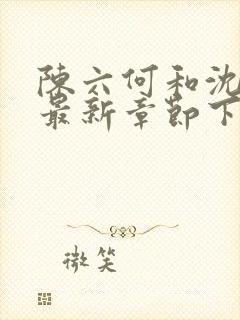 陳六何和沈
最新章節下
微笑